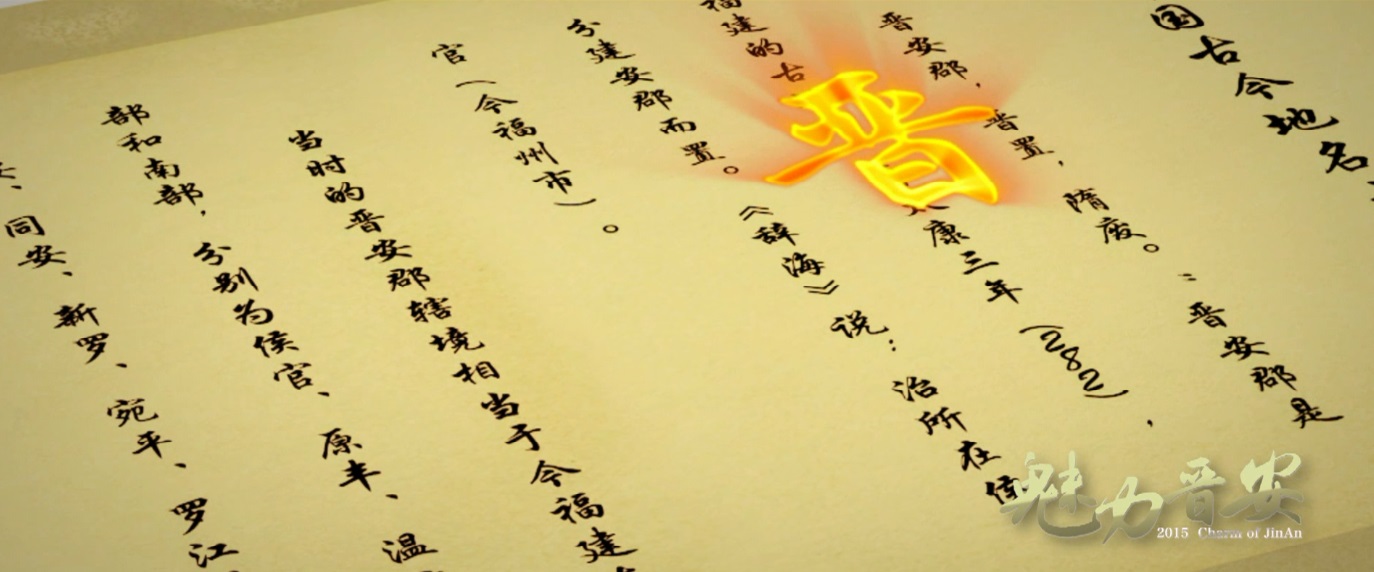 国古今地名
晋安郡，晋置，隋废。：晋安郡是
福建的古
晋
康三年（282），
分建安郡而置。《辞海》说：治所在侯
官（今福州市）。
当时的晋安郡辖境相当于今福建
部和南部，分别为侯官、原丰、温
、同安、新罗、宛平、罗江
魅力晋安
2015 Charm of JinAn